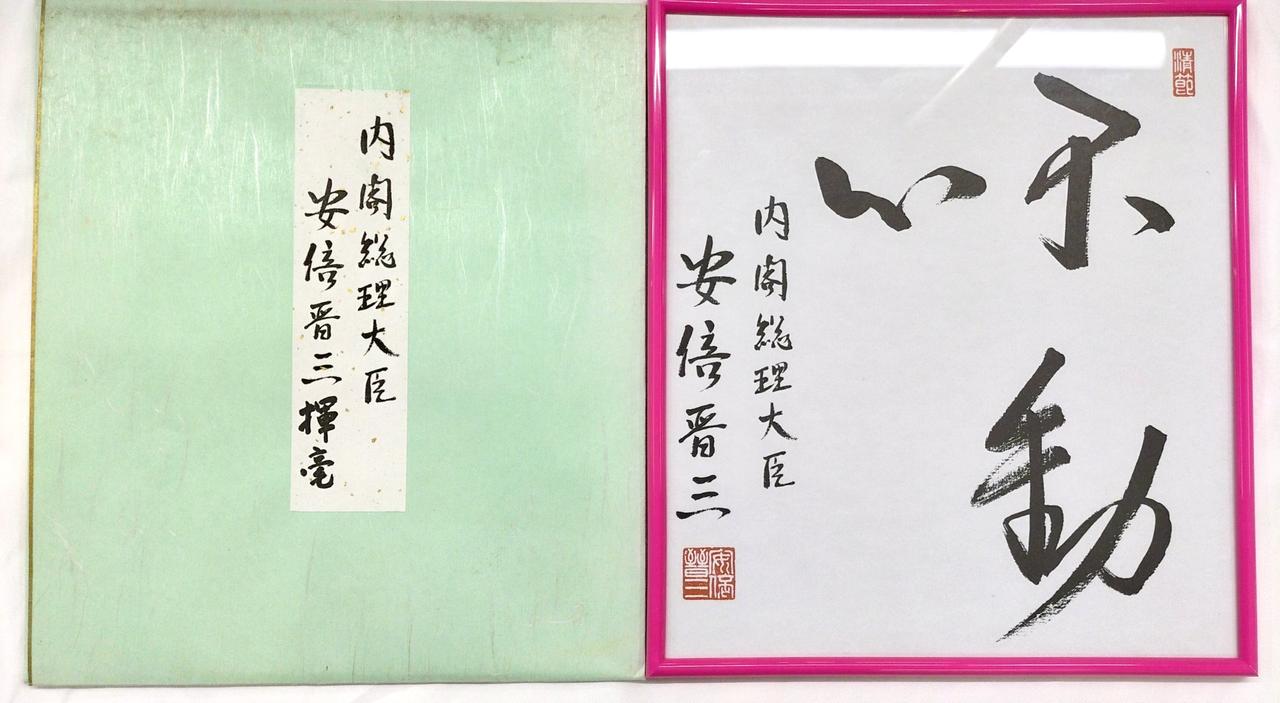 内閣総理大臣
安倍晋三揮毫
清節
不動
心
内閣総理大臣
安倍晋三
安倍晋三